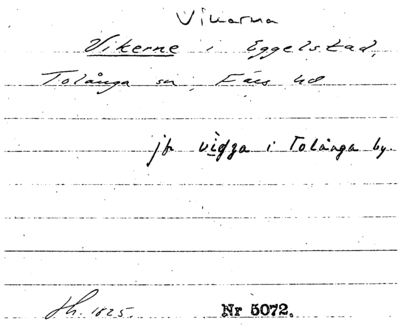 Vikarna
Vikerne i Eggelstad,
Tolånga sn, Färs hd
jfr vidga i Tolånga by.
Sh. 1825. Nr 5072.